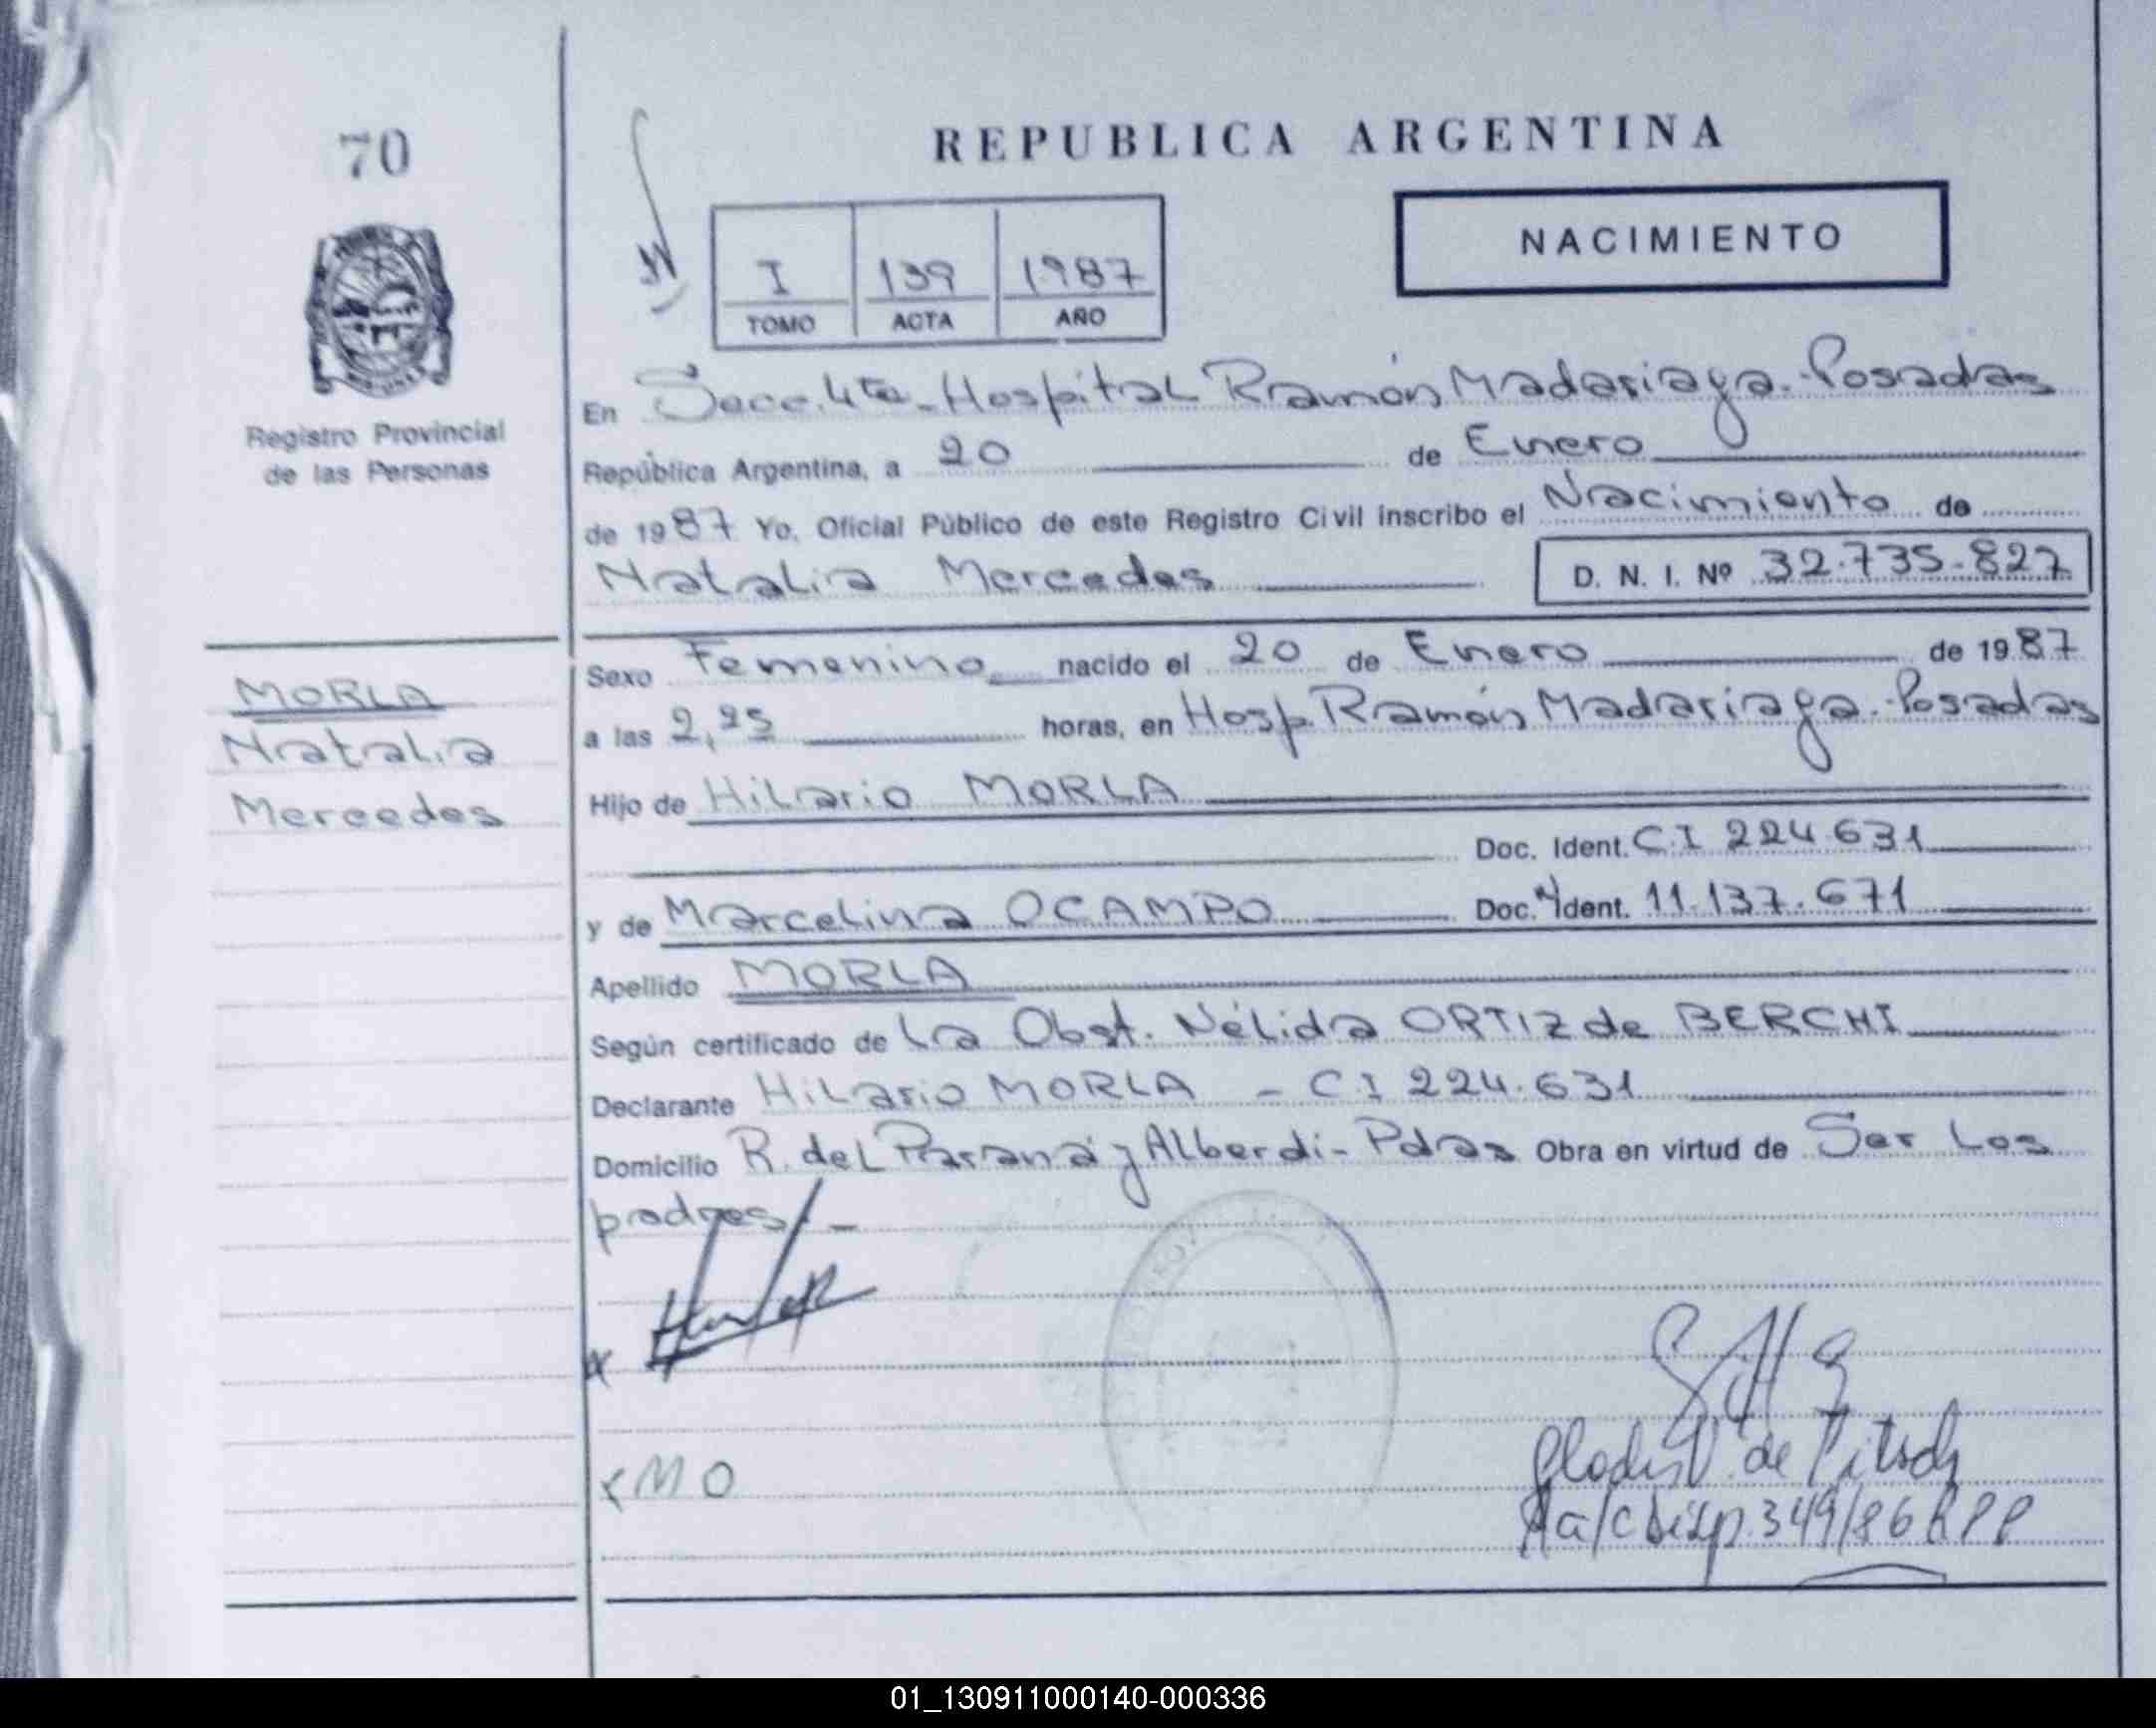 70
REPUBLICA ARGENTINA
NACIMIENTO
I 139 1987
TOMO ACTA AÑO
Registro Provincial
de las Personas
En Secc. 4ta - Hospital Ramón Madariaga.-Posadas
República Argentina, a 20 de Enero
de 1987 Yo, Oficial Público de este Registro Civil inscribo el Nacimiento de
Natalia Mercedes D. N. I. Nº 32.735.827
MORLA
Natalia
Mercedes
Sexo Femenino nacido el 20 de Enero de 1987
a las 2,25 horas, en Hosp. Ramón Madariaga.-Posadas
Hijo de Hilario MORLA
Doc. Ident. C.I 224.631
y de Marcelina OCAMPO Doc. Ident. 11.137.671
Apellido MORLA
Según certificado de La Obst. Nélida ORTIZ de BERCHI
Declarante Hilario MORLA - C.I 224.631
Domicilio R. del Paraná y Alberdi - Pdas Obra en virtud de Ser Los
padres.-
x MO
de Pitsch
a/c Disp. 349/86 RPP
01_130911000140-000336